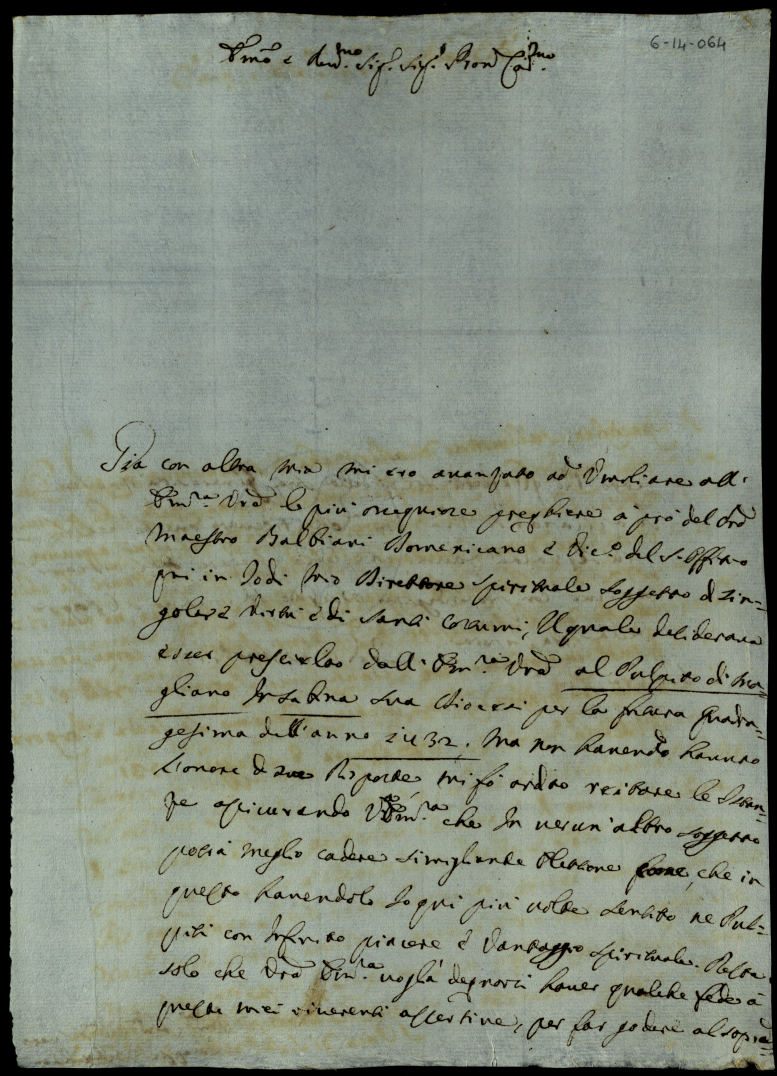 6-14-064
Em̃o e Reu.mo Sig.r Sig.r Pron Col.mo
Già con altra mia mi ero auanzato ad Vmiliare all'
Em.a Vrã le più ossequiose preghiere à prò del Prẽ
Maestro Balbiani Domenicano e Vic.o del S. Offitio
qui in Lodi mio Direttore Spirituale soggetto di sin=
golare virtù è di santi costumi, Il quale desideraua
esser prescielto dall' Em.a Vrã al Pulpito di Ma=
gliano In Sabina sua Diocesi per la futura Quadra=
gesima dell'anno 1732. Ma non hauendo hauuto
L'onore di sue Risposte mi fò ardito reiterare le Istan=
ze assicurando V. Em.a che In uerun'altro soggetto
potrà meglio cadere simigliante Elettione, che in
questo hauendolo Io qui più uolte sentito ne Pul=
piti con Infinito piacere è Vantaggio spirituale. Resta
solo che Vrã Em.a uoglia degnarsi hauer qualche fede à
queste miei riuerenti assertiue, per far godere al sopra=